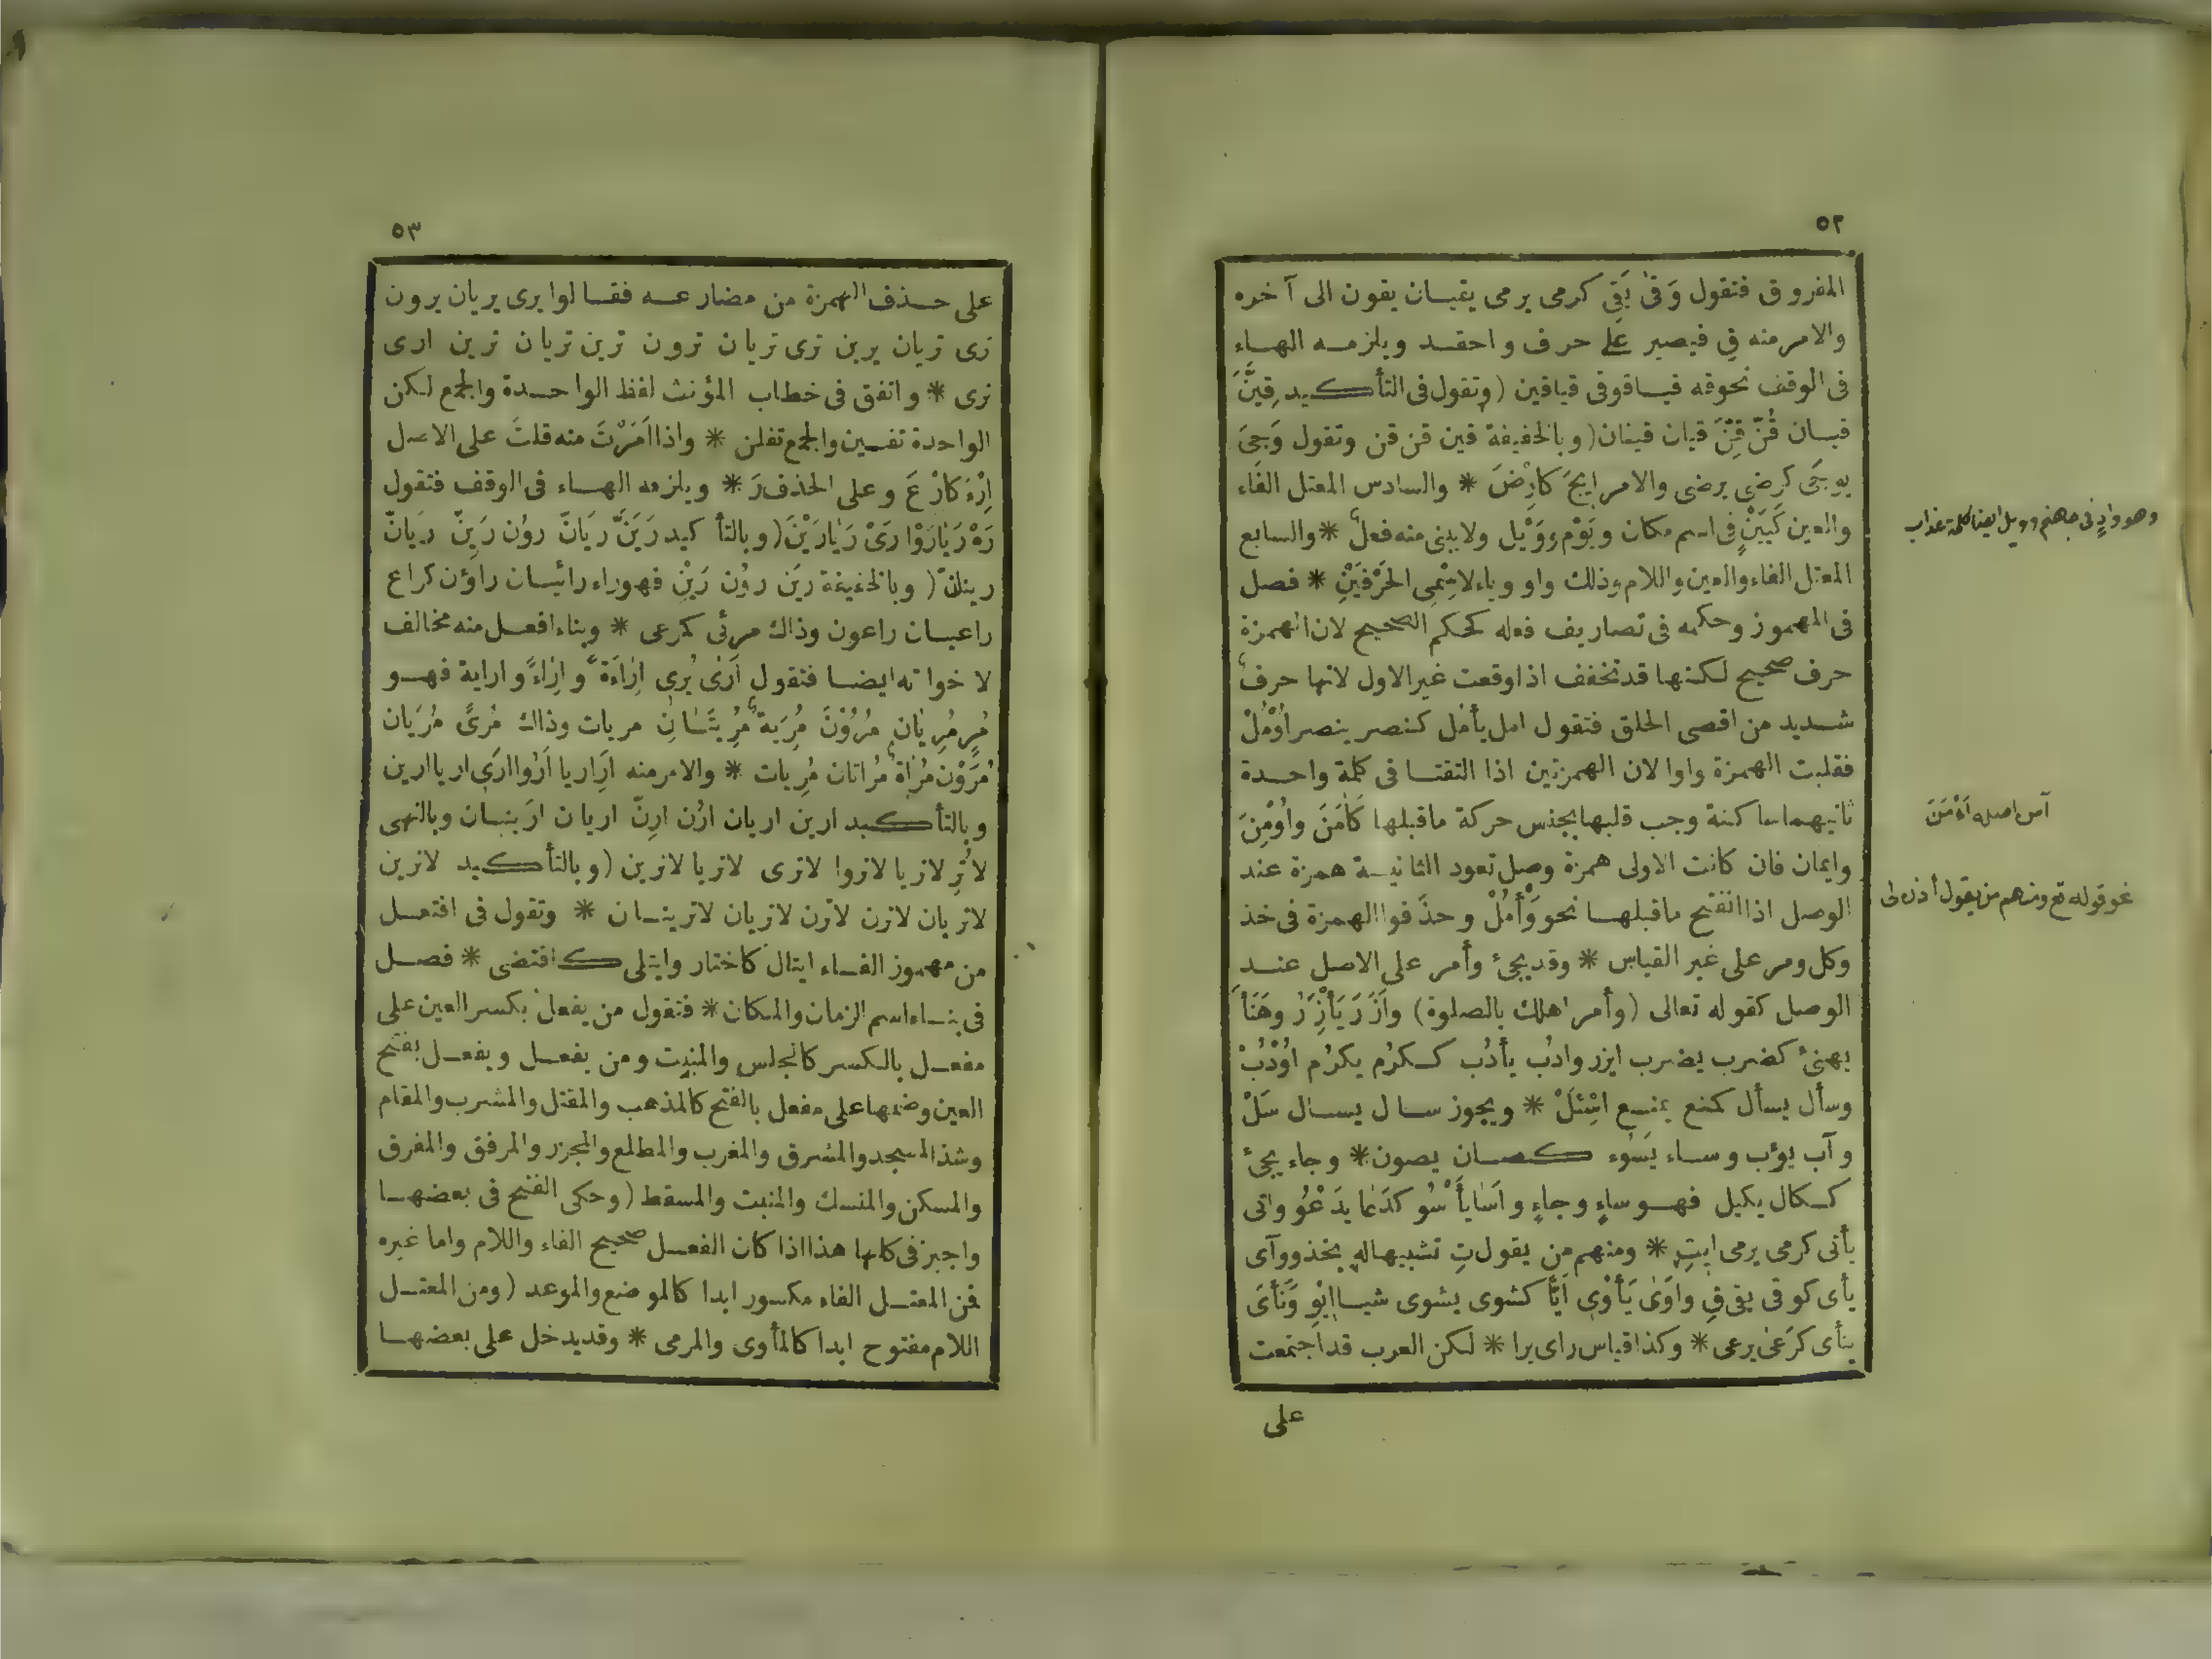 ٥٢
المفروق فتقول وَقىٰ يَقِي كرمى يرمى يقيان يقون الى آخره
والامر منه قِ فيصير على حرف واحد ويلزمه الهاء
فى الوقف نحوقه قيا قوقى قياقين (وتقول فى التأكيد قِيَنَّ
قيان قُنّ قِنَّ قيان قينان (وبالخفيفة قين قن قن وتقول وَجِىَ
يوجَى كرضى يرضى والامر ايجَ كارْضَ * والسادس المعتل الفاء
والعين كَيَيْنٍ فى اسم مكان ويَوْم ووَيْل ولايبنى منه فعل * والسابع
المعتل الفاء والعين واللام وذلك واو وياء لاسْمَىِ الحَرْفَيْنِ * فصل
فى المهموز وحكمه فى تصاريف فعله كحكم الصحيح لان الهمزة
حرف صحيح لكنها قد تخفف اذا وقعت غير الاول لانها حرف
شديد من اقصى الحلق فتقول امل يأمل كنصر ينصر اُوْمُلْ
فقلبت الهمزة واوا لان الهمزتين اذا التقتا فى كلمة واحدة
ثانيهما ساكنة وجب قلبها بجنس حركة ماقبلها كآمَنَ واُوْمِنَ
وايمان فان كانت الاولى همزة وصل تعود الثانية همزة عند
الوصل اذا انفتح ماقبلها نحو وَأْمُلْ وحذفوا الهمزة فى خذ
وكل ومر على غير القياس * وقد يجئ وأمر على الاصل عند
الوصل كقوله تعالى (وأمر اهلك بالصلوة) وأَزَرَ يَأْزِرُ وهَنَأَ
يهنئ كضرب يضرب ايزر وادُب يأدُب ككرُم يكرُم اُوْدُبْ
وسأل يسأل كمنع يمنع اسْئَلْ * ويجوز سال يسال سَلْ
وآب يؤب وساء يَسُوء كصان يصون * وجاء يجئ
ككال يكيل فهو ساءٍ وجاءٍ واَسَا يأْسُو كدَعا يدَعْوُ واتى
يأتى كرمى يرمى ايتِ * ومنهم من يقول تِ تشبيها له بخذ ووآى
يأى كوقى يقى قِ واَوَىٰ يَأْوِى اَيًّا كشوى يشوى شيا ايْوِ ونَأَىَ
ينأى كرَعىٰ يرعى * وكذا قياس راى يرا * لكن العرب قد اجتمعت
على
وهو وادٍ فى جهنم وويل ايضا كلمة عذاب
آمن اصله اَءْمَنَ
نحو قوله تع ومنهم من يقول أذن لى
٥٣
على حذف الهمزة من مضارعه فقالوا يرى يريان يرون
ترى تريان يرين ترى تريان ترون ترين تريان ترين ارى
نرى * واتفق فى خطاب المؤنث لفظ الواحدة والجمع لكن
الواحدة تفين والجمع تفلن * واذا اَمَرْتَ منه قلتَ على الاصل
اِرْءَ كارْعَ وعلى الحذف رَ * ويلزمه الهاء فى الوقف فتقول
رَهْ رَيَا رَوْا رَىْ رَيَا رَيْنَ (وبالتأكيد رَيَنَّ رَيَانّ روُن رَيِنّ ريانّ
رينانّ (وبالخفيفة ريَن روُن رَيِنْ فهوراء رائيان راؤن كراع
راعيان راعون وذاك مرئى كمرعى * وبناء افعل منه مخالف
لاخواته ايضا فتقول اَرىٰ يُرِى اِرَاءَةً واِرَاءً وارایة فهو
مُرٍ مُرِيَانِ مُرُوْنَ مُرِيَة مُرِيَتَانِ مريات وذاك مُرىً مُرَيان
مُرَوْن مُرَاة مُراتان مُرَيات * والامر منه اَرِ اريا اَرُوا اَرِى اريا ارين
وبالتأكيد ارين اريان ارُن ارِنّ اريان ارَينان وبالنهى
لاتُرِ لاتريا لاتروا لاترى لاتريا لاترين (وبالتأكيد لاترين
لاتريان لاترن لاترن لاتريان لاترينان * وتقول فى افتعل
من مهموز الفاء ايتال كاختار وايتلى كاقتضى * فصل
فى بناء اسم الزمان والمكان * فتقول من يفعل بكسر العين على
مفعل بالكسر كالمجلس والمبيت ومن يفعل ويفعل بفتح
العين وضمها على مفعل بالفتح كالمذهب والمقتل والمشرب والمقام
وشذ المسجد والمشرق والمغرب والمطلع والمجزر والمرفق والمفرق
والمسكن والمنسك والمنبت والمسقط (وحكى الفتح فى بعضها
واجيز فى كلها هذا اذا كان الفعل صحيح الفاء واللام واما غيره
فمن المعتل الفاء مكسور ابدا كالموضع والموعد (ومن المعتل
اللام مفتوح ابدا كالمأوى والمرمى * وقد يدخل على بعضها